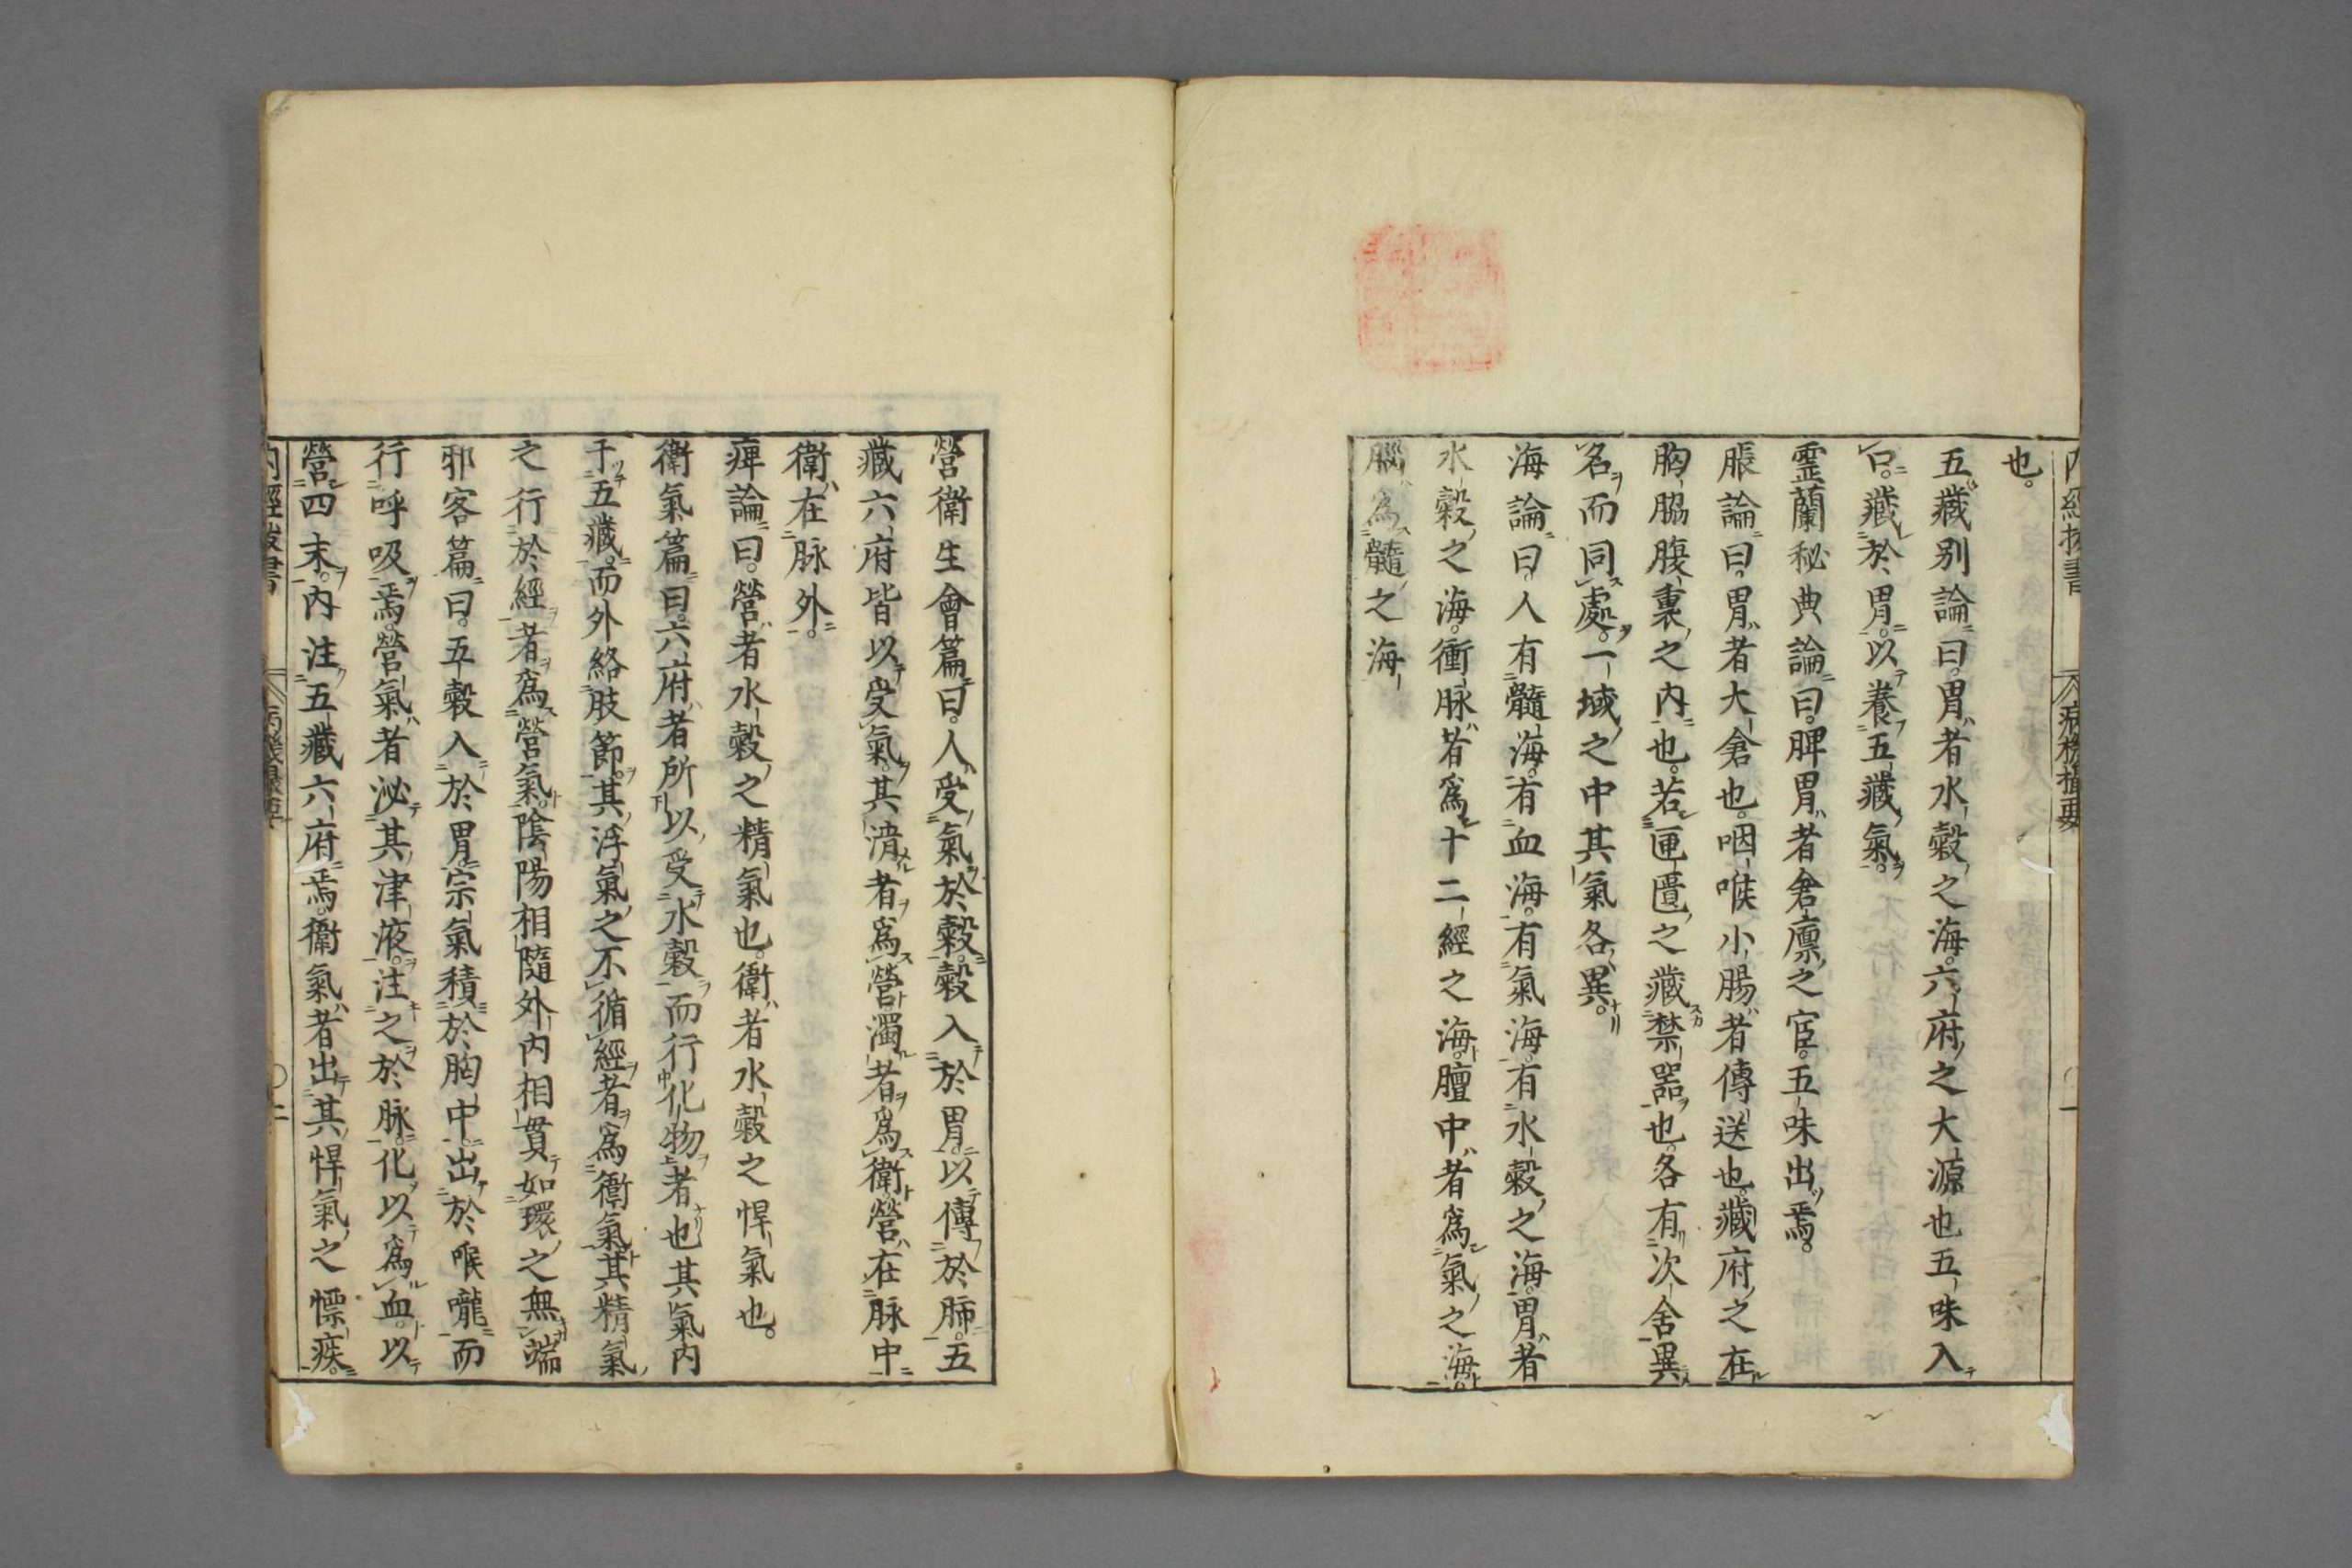 也。
五藏別論曰。胃者水穀之海。六府之大源也五味入
口。藏於胃。以養五藏氣。
靈蘭秘典論曰。脾胃者倉廩之官。五味出焉。
脹論曰。胃者大倉也。咽喉小腸者傳送也。藏府之在
胸脇腹裏之內也。若匣匱之藏禁器也。各有次舍異
名而同處。一域之中其氣各異。
海論曰。人有髓海。有血海。有氣海。有水穀之海。胃者
水穀之海。衝脉者爲十二經之海。膻中者爲氣之海。
腦爲髓之海
營衛生會篇曰。人受氣於穀。穀入於胃。以傳於肺。五
藏六府皆以受氣。其清者爲營。濁者爲衛。營在脉中
衛在脉外。
痺論曰。營者水穀之精氣也。衛者水穀之悍氣也。
衛氣篇曰。六府者所以受水穀而行化物者也其氣内
于五藏。而外絡肢節。其浮氣之不循經者爲衛氣其精氣
之行於經者爲營氣。陰陽相隨外内相貫如環之無端
邪客篇曰。五穀入於胃。宗氣積於胸中。出於喉嚨而
行呼吸焉。營氣者泌其津液。注之於脉。化以爲血。以
營四末。內注五藏六府焉。衛氣者出其悍氣之慓疾。